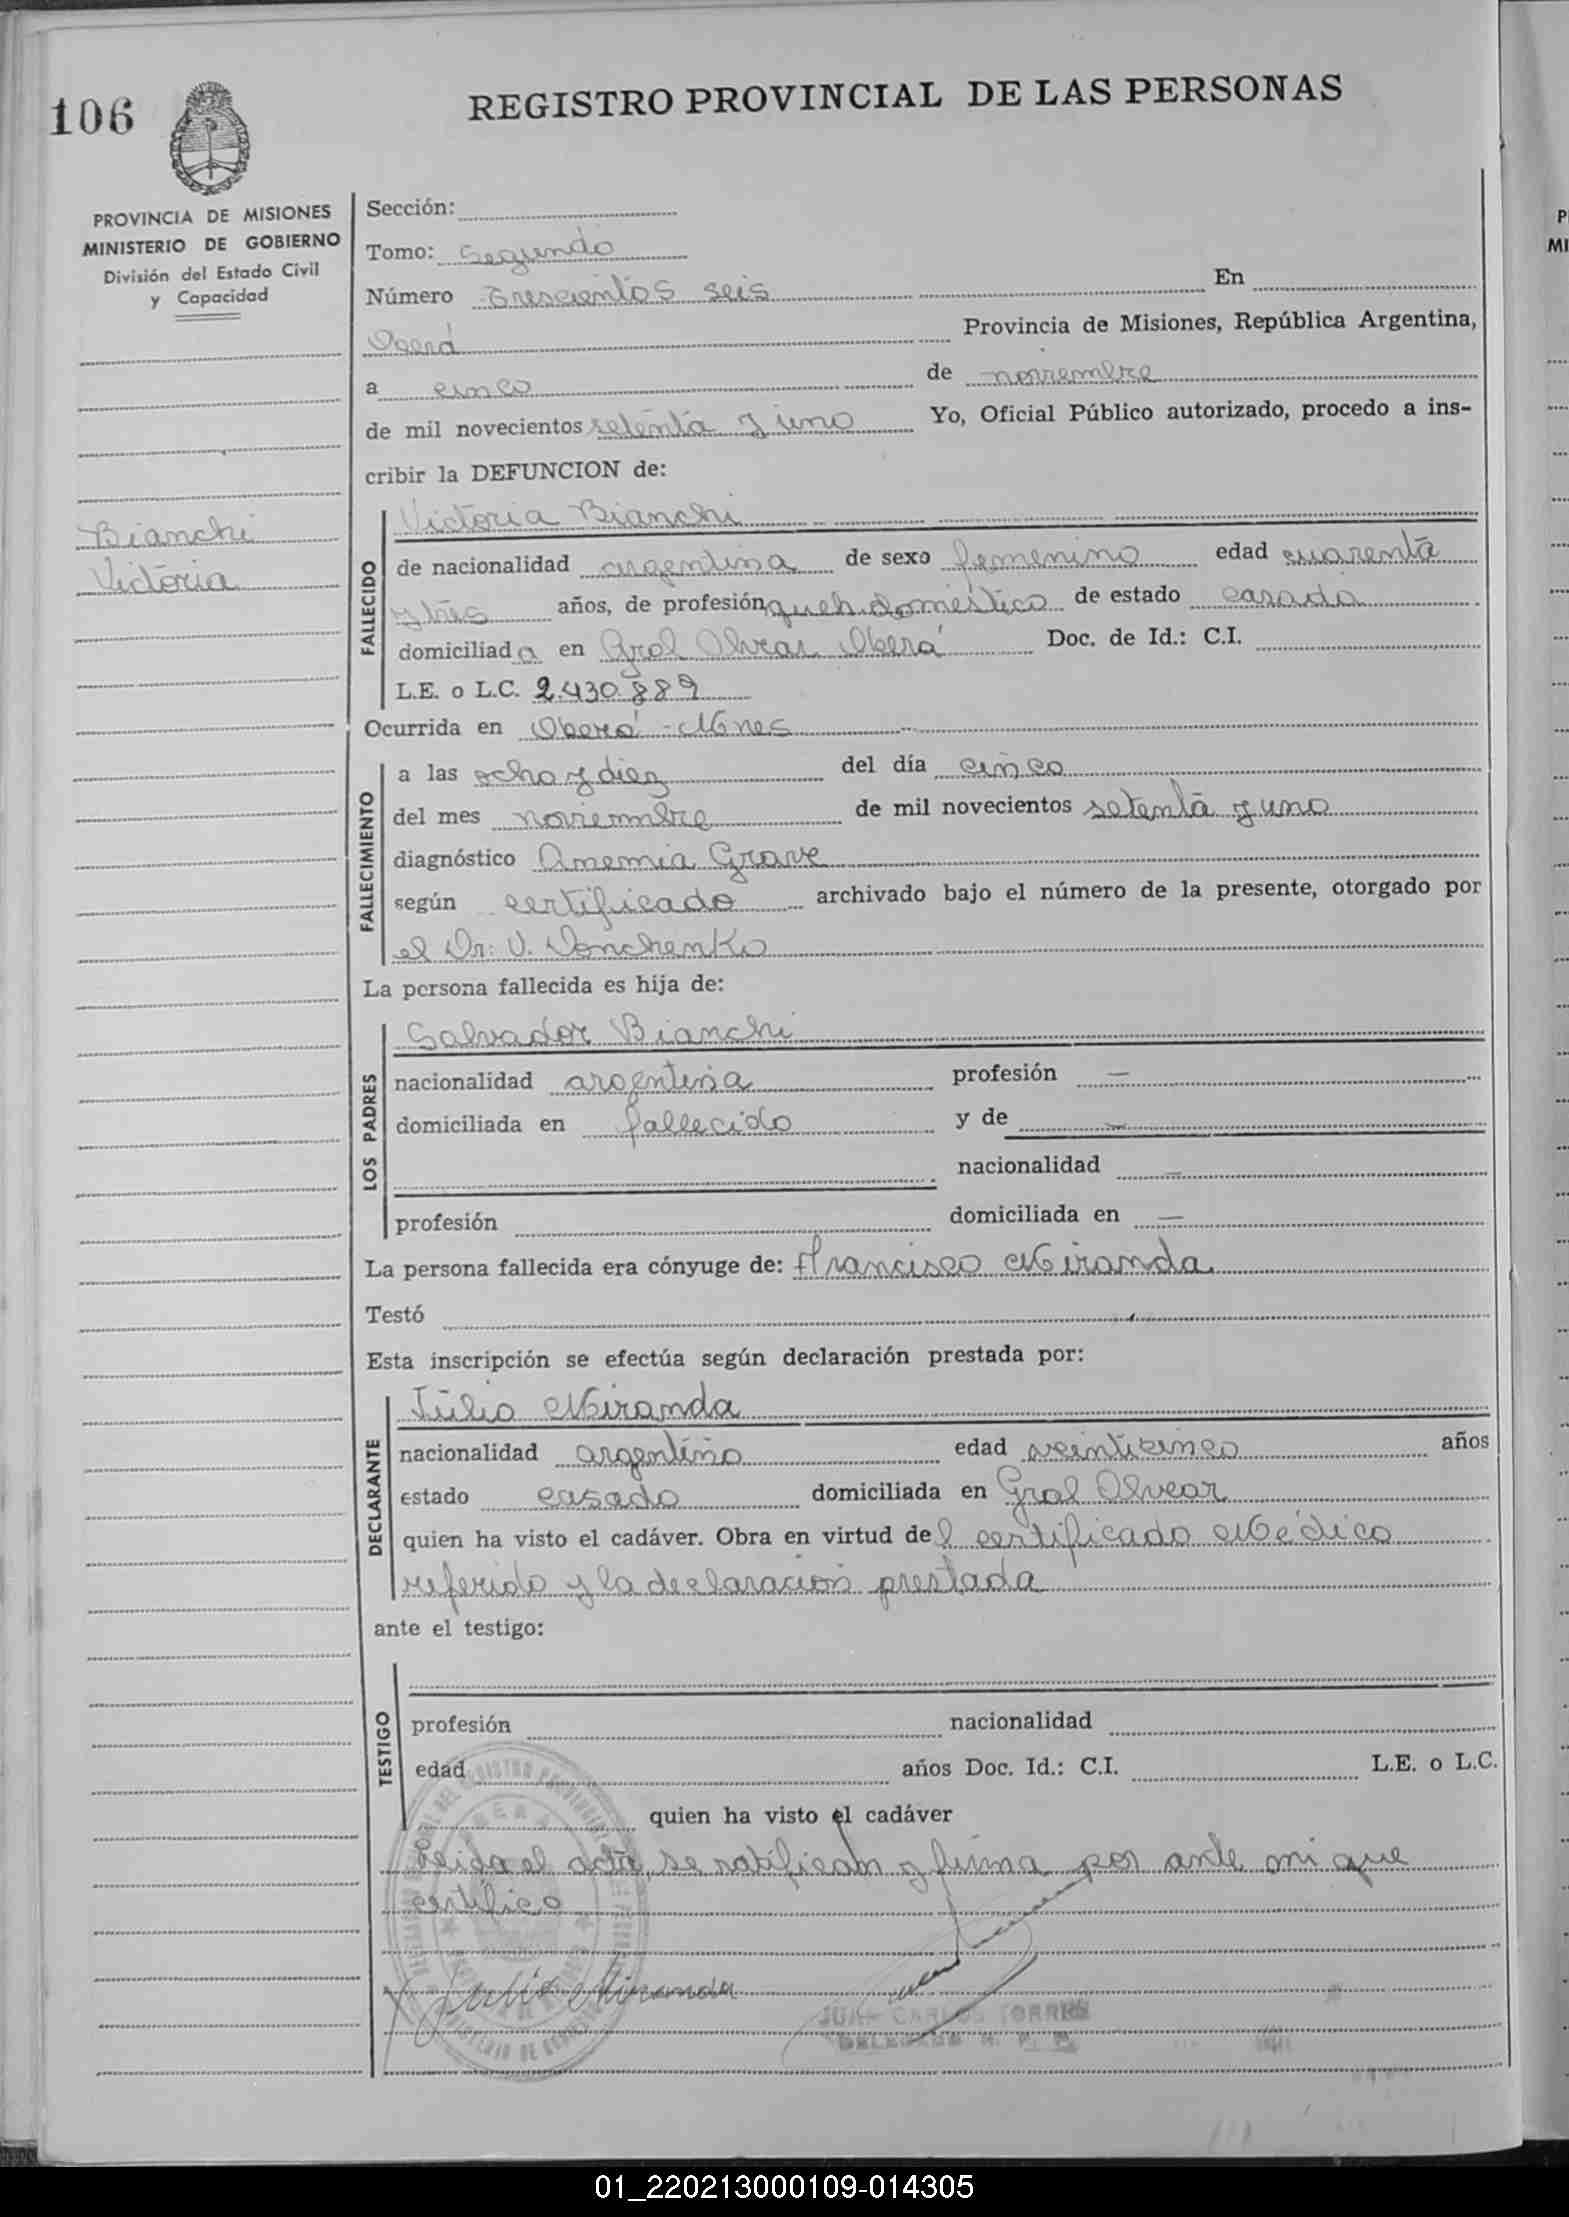 106
REGISTRO PROVINCIAL DE LAS PERSONAS
PROVINCIA DE MISIONES
MINISTERIO DE GOBIERNO
División del Estado Civil
y Capacidad
Bianchi
Victoria
Sección:
Tomo: Segundo
Número Trescientos seis En
Oberá Provincia de Misiones, República Argentina,
a cinco de noviembre
de mil novecientos setenta y uno Yo, Oficial Público autorizado, procedo a ins-
cribir la DEFUNCION de:
FALLECIDO
Victoria Bianchi
de nacionalidad argentina de sexo femenino edad cuarenta
y tres años, de profesión queh. doméstico de estado casada
domiciliada en Gral Alvear Oberá Doc. de Id.: C.I.
L.E. o L.C. 2.430.889
Ocurrida en Oberá - Mnes
FALLECIMIENTO
a las ocho y diez del día cinco
del mes noviembre de mil novecientos setenta y uno
diagnóstico Anemia Grave
según certificado archivado bajo el número de la presente, otorgado por
el Dr: V. Donchenko
La persona fallecida es hija de:
LOS PADRES
Salvador Bianchi
nacionalidad argentina profesión —
domiciliada en fallecido y de —
nacionalidad —
profesión domiciliada en —
La persona fallecida era cónyuge de: Francisco Miranda
Testó
Esta inscripción se efectúa según declaración prestada por:
DECLARANTE
Júlio Miranda
nacionalidad argentino edad veinticinco años
estado casado domiciliada en Gral Alvear
quien ha visto el cadáver. Obra en virtud del certificado Médico
referido y la declaración prestada
ante el testigo:
TESTIGO
profesión nacionalidad
edad años Doc. Id.: C.I. L.E. o L.C.
quien ha visto el cadáver
Leida el acta, se ratifican y firma por ante mi que
certifico
Julio Miranda
JUAN CARLOS TORRES
DELEGADO R. P. P.
01_220213000109-014305